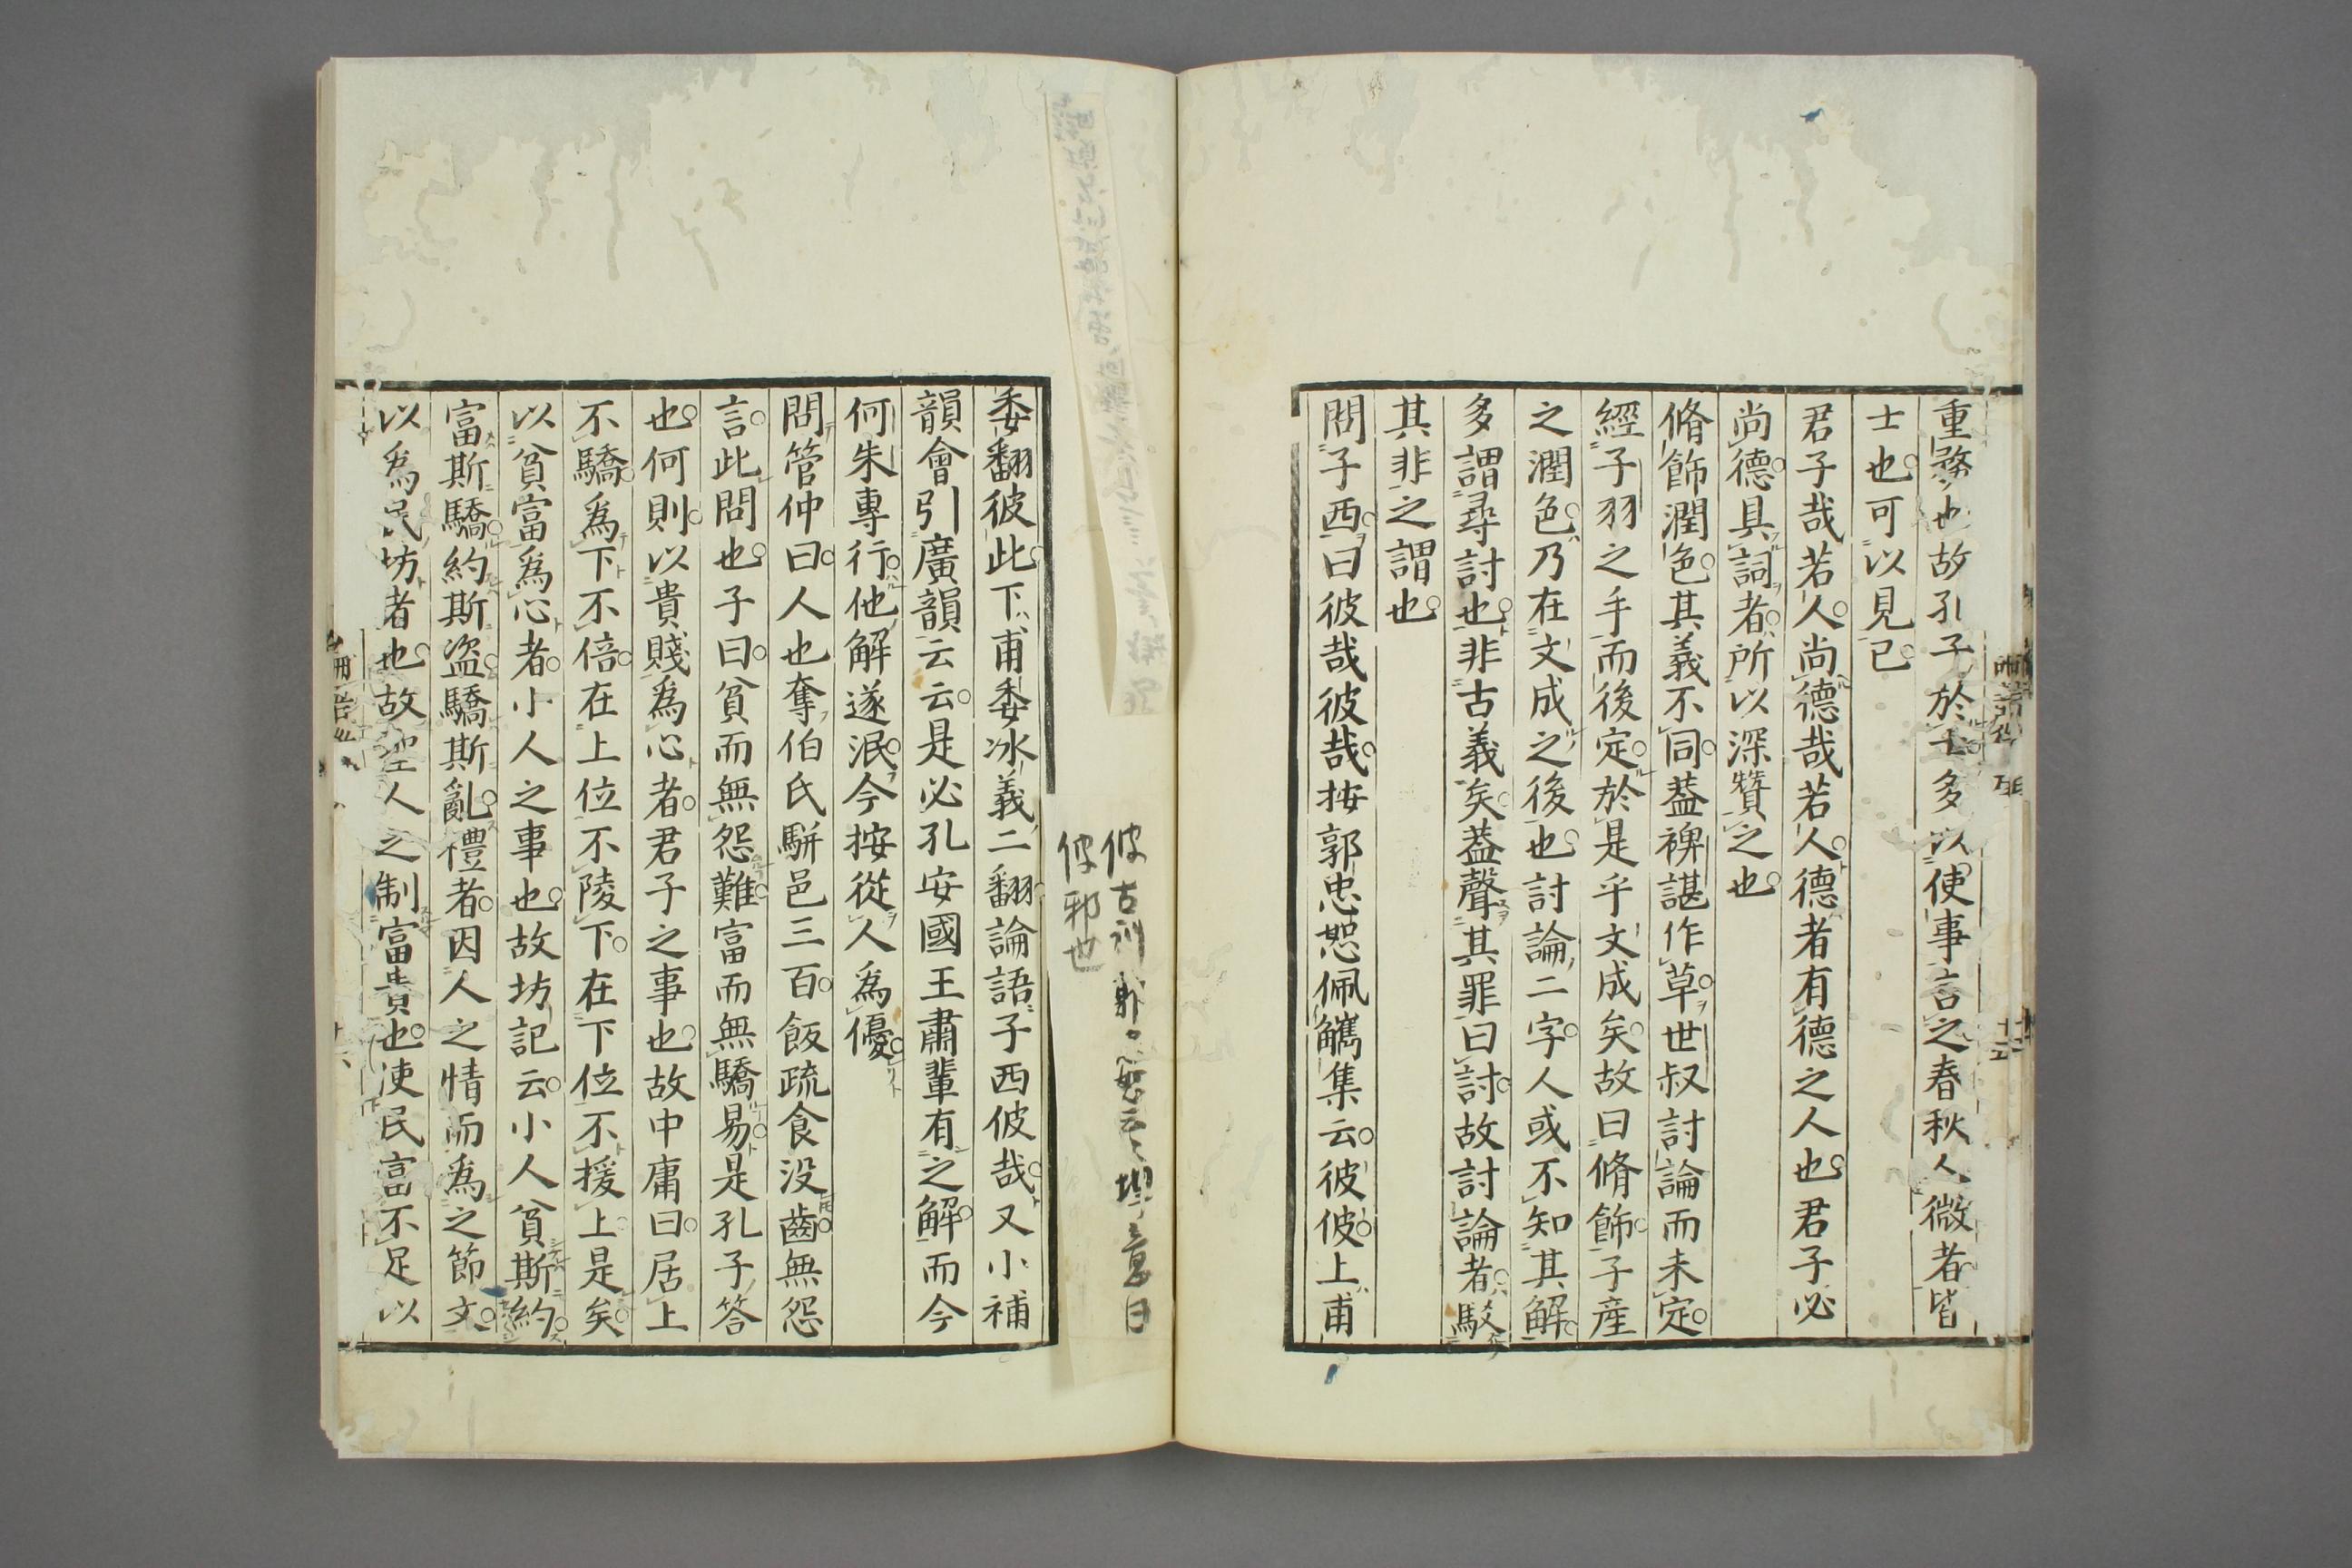 重務也故孔子於士多以使事言之春秋人微者皆
士也可以見已
君子哉若人尚德哉若人德者有德之人也君子必
尚德具詞者所以深贊之也
脩飾潤色其義不同葢裨諶作草世叔討論而未定
經子羽之手而後定於是乎文成矣故曰脩飾子產
之潤色乃在文成之後也討論二字人或不知其解
多謂尋討也非古義矣葢聲其罪曰討故討論者駁
其非之謂也
問子西曰彼哉彼哉按郭忠恕佩觿集云彼佊上甫
委翻彼此下甫委冰義二翻論語子西佊哉又小補
韻會引廣韻云云是必孔安國王肅輩有之解而今
何朱專行他解遂泯今按從人為優
問管仲曰人也奪伯氏駢邑三百飯疏食没齒無怨
言此問也子曰貧而無怨難富而無驕易是孔子答
也何則以貴賤為心者君子之事也故中庸曰居上
不驕為下不倍在上位不陵下在下位不援上是矣
以貧富為心者小人之事也故坊記云小人貧斯約
富斯驕約斯盜驕斯亂禮者因人之情而為之節文
以為民坊者也故聖人之制富貴也使民富不足以
佊古訓
佊邪也